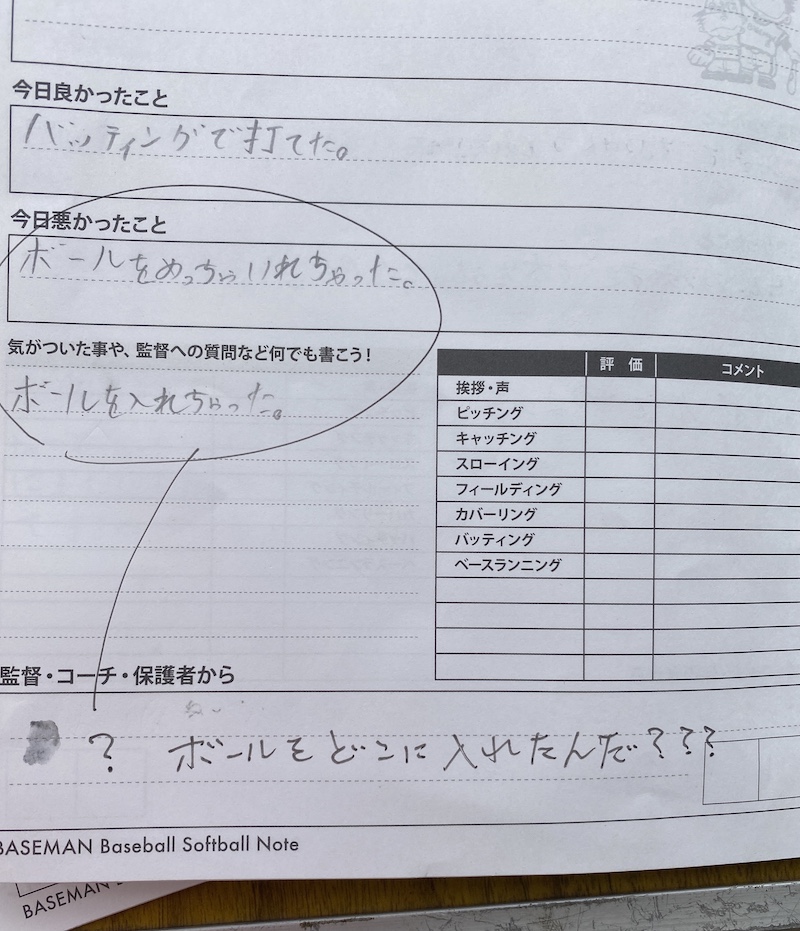 今日良かったこと
バッティングで打てた。
今日悪かったこと
ボールをめっちゃいれちゃった。
気がついた事や、監督への質問など何でも書こう!
ボールを入れちゃった。
評 価 コメント
挨拶・声
ピッチング
キャッチング
スローイング
フィールディング
カバーリング
バッティング
ベースランニング
監督・コーチ・保護者から
? ボールをどこに入れたんだ???
BASEMAN Baseball Softball Note
BASEMAN